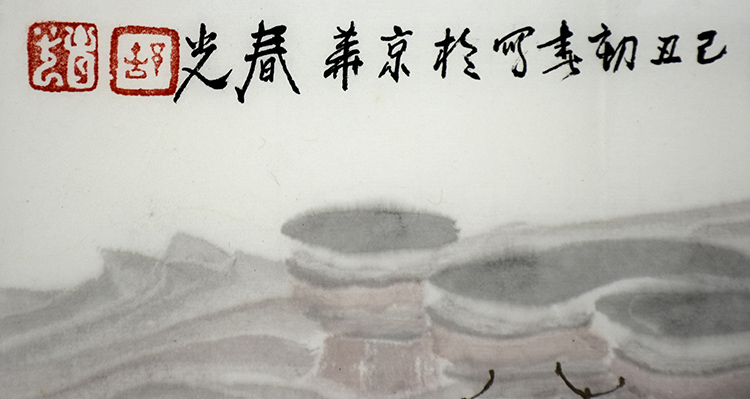 己丑初春写於京華春光